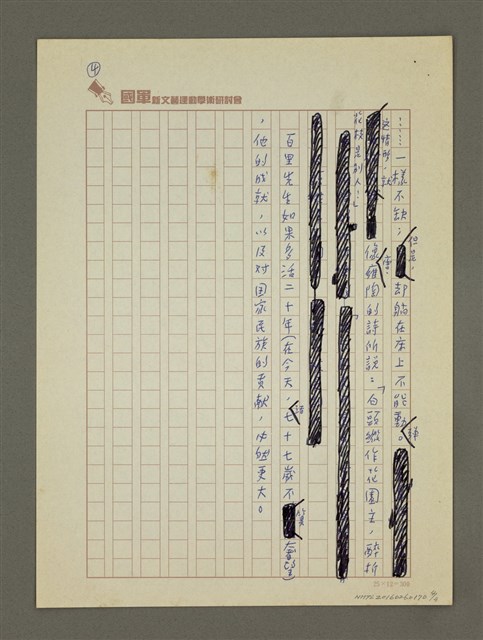 ④
國軍新文藝運動學術研討會
……一樣不缺；但是，却躺在床上不能動。
這情形，就像維陶的詩所說：「白頭縱作花園主，醉折
花枝是別人…」
百里先生如果多活二十年（在今天，七十七歲不算
，他的成就，以及對囯家民族的貢献，必然更大。
25×12＝300